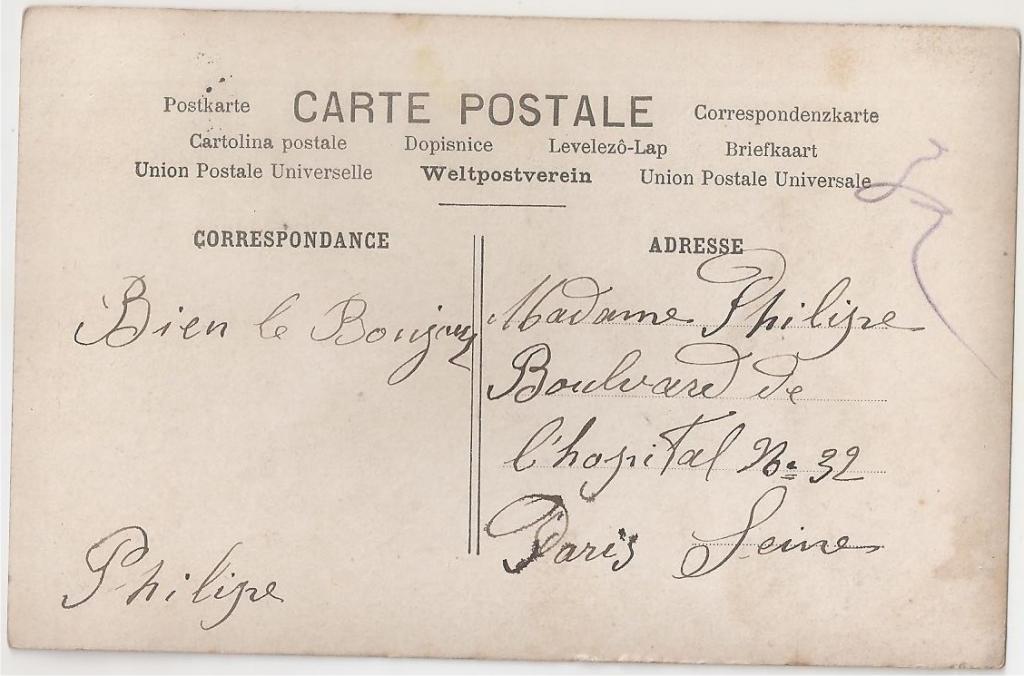 Postkarte CARTE POSTALE Correspondenzkarte
Cartolina postale Dopisnice Levelezô-Lap Briefkaart
Union Postale Universelle Weltpostverein Union Postale Universale
CORRESPONDANCE
Bien le Bonjour
Philipe
ADRESSE
Madame Philipe
Boulvard de
l'hopital No 32
Paris Seine